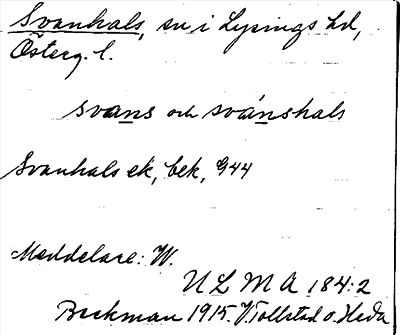 Svanhals, sn i Lysings hd,
Österg. l.
svans och svánshals
Svanhals ek, bek, 944
Meddelare: W.
ULMA 184:2
Beckman 1915. Vtollstad o. Heda